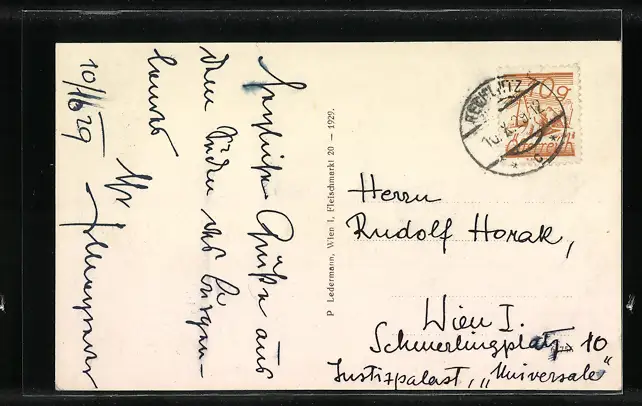 Herzliche Grüße aus
dem Süden des Burgen-
landes
Ihr
10/X 29
P. Ledermann, Wien I, Fleischmarkt 20 — 1929.
10g
Herrn
Rudolf Horak,
Wien I.
Schmerlingplatz 10
Justizpalast, „Universale"